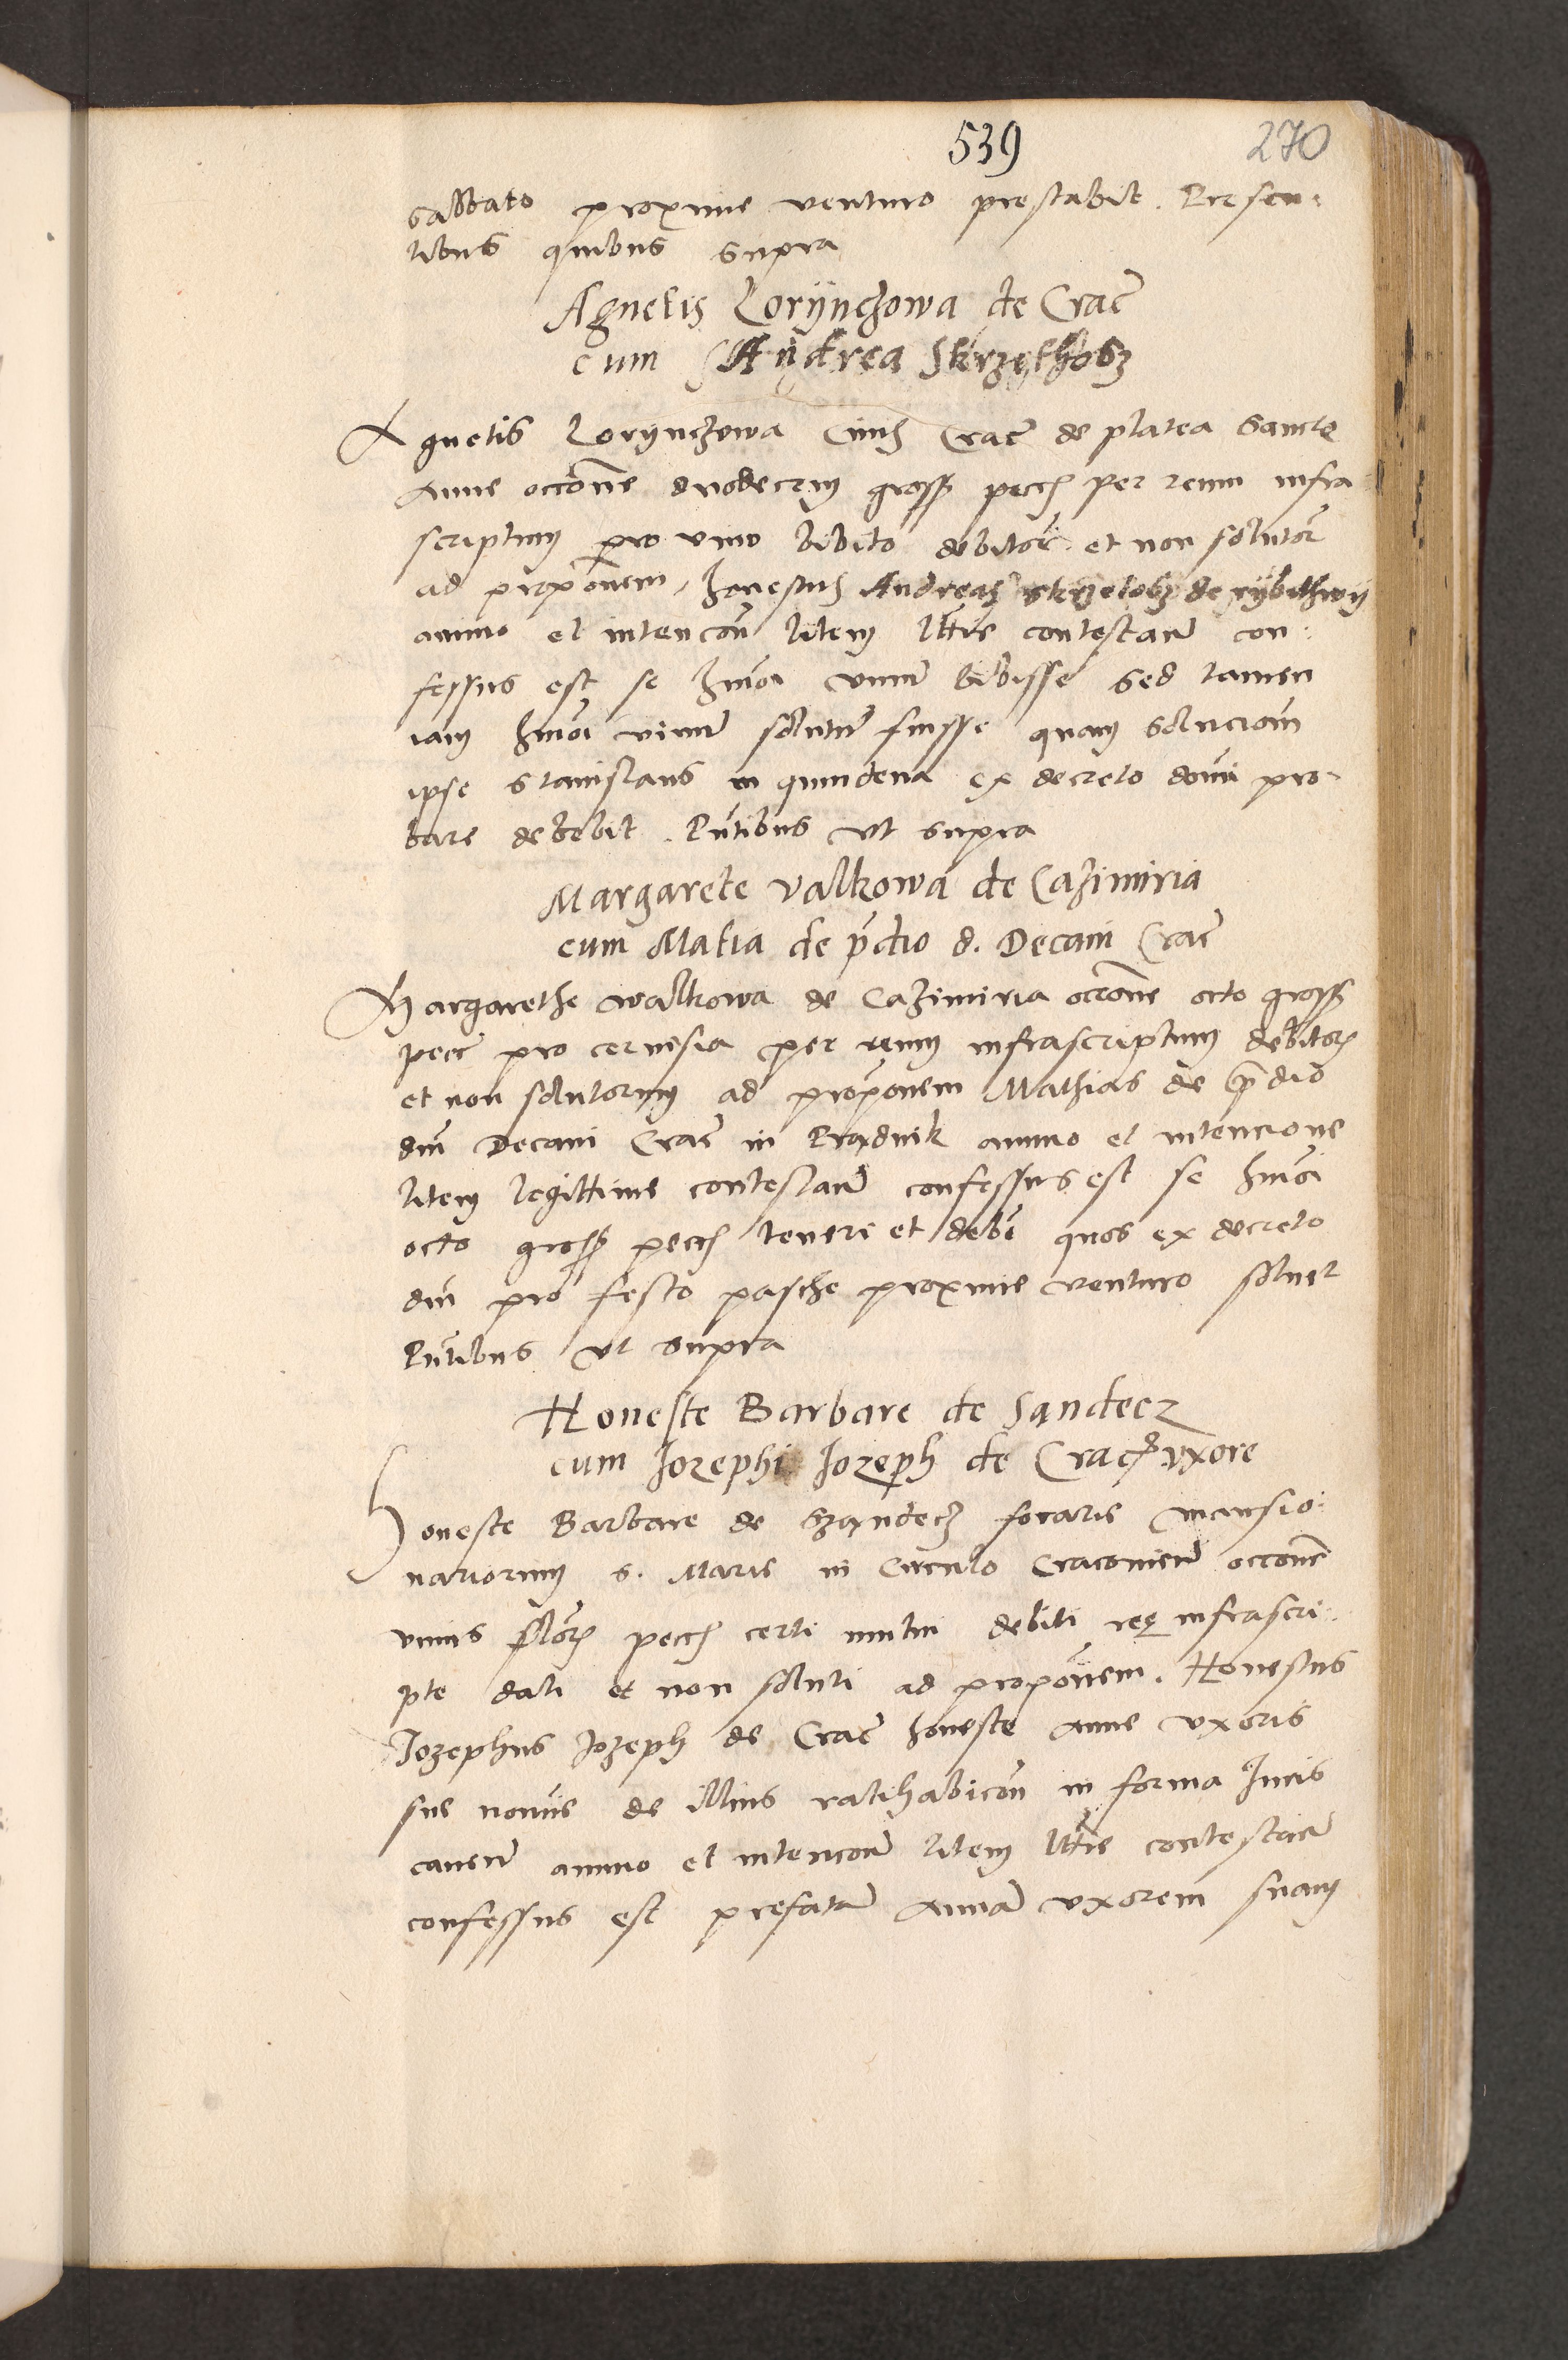 539 270
sabbato proxime venturo prestabit. Presen:
tibus quibus supra
Agnetis Lorÿnczowa de Crac̄
cum Andrea Skrzethosz
Agnetis Lorÿnczowa Civis Crac̄ de platea Sancte
Anne occ͡one duodecim gross peccͩ per reum infra
scriptum pro vino bibito debitor̄ et non solutor̄
ad prop͡onem, honestus Andreas skrzetosz de rÿbithwÿ
animo et intenc͡on litem l͡ttie contestan̄ con:
fessus est se hm͡oi vinum bibisse sed tamen
iam hm͡oi vinum solutum fuisse quam soluc͡ionem
ipse Stanislaus in quindena ex decreto domi͡ pro-
bare debebit. Pn͡tibus vt supra
Margarete valkowa de Cazimiria
cum Matia de p͞dio d. Decani Crac̄
Margarethe walkowa de Cazimiria occ͡one octo gross
pecc̄ pro cervisia per reum infrascriptum debitorͩ
et non solutorum ad prop͡onem Mathias de p͞dio
dn͡i Decani Crac̄ in Prądnik animo et intencione
litem legittime contestan̄ confessus est se hm͡oi
octo gross peccͩ teneri et deb͡i quos ex decreto
dn͡i pro festo pasche proxime venturo soluet
Pn͡tibus vt supra
Honeste Barbare de Sandecz
cum Jozephi Jozeph de Crac̄ vxore
Honeste Barbare de Szandecz focarie mansio:
nariorum S. Marie in Circulo Cracovien̄ occ͡one
vnius flor̄ peccͩ certi mutui debiti ree infrascri:
pte dati et non soluti ad prop͡onem. Honestus
Jozephus Jozeph de Crac̄ honeste Anne vxoris
sue nom͡ie de illius ratihabic͡on in forma Juris
caven̄ animo et intenc͡one litem l͡ttie contestan̄
confessus est prefatam Annam vxorem suam